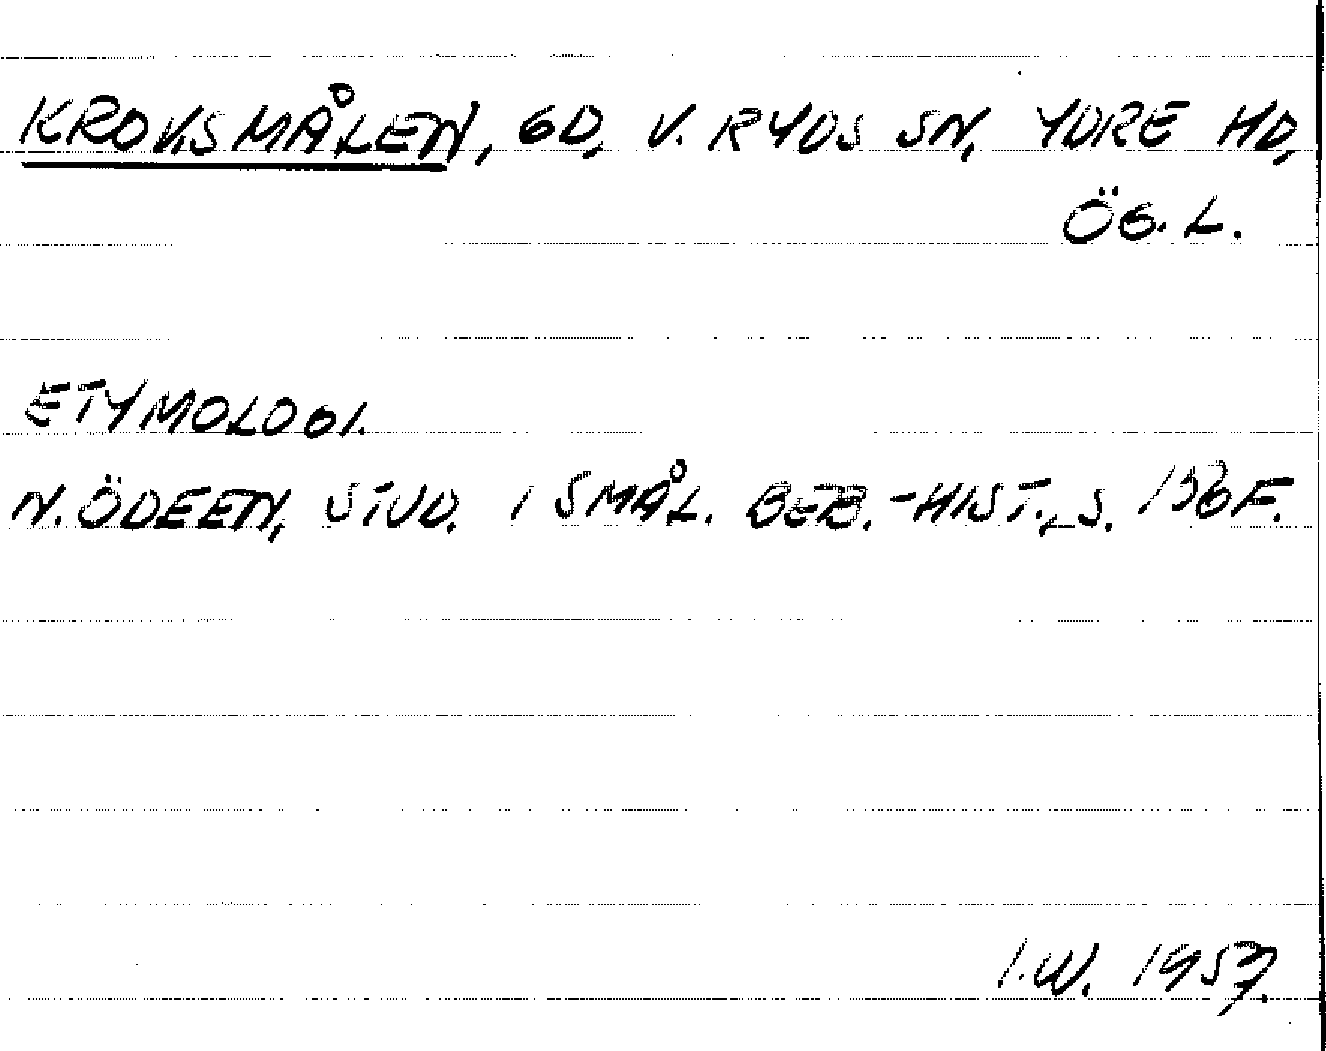 KROKSMÅLEN, GD, V. RYDS SN, YDRE HD,
ÖG. L.
ETYMOLOGI.
N. ÖDEEN, STUD. I SMÅL. BEB.-HIST., S. 136 F.
I.W. 1957.